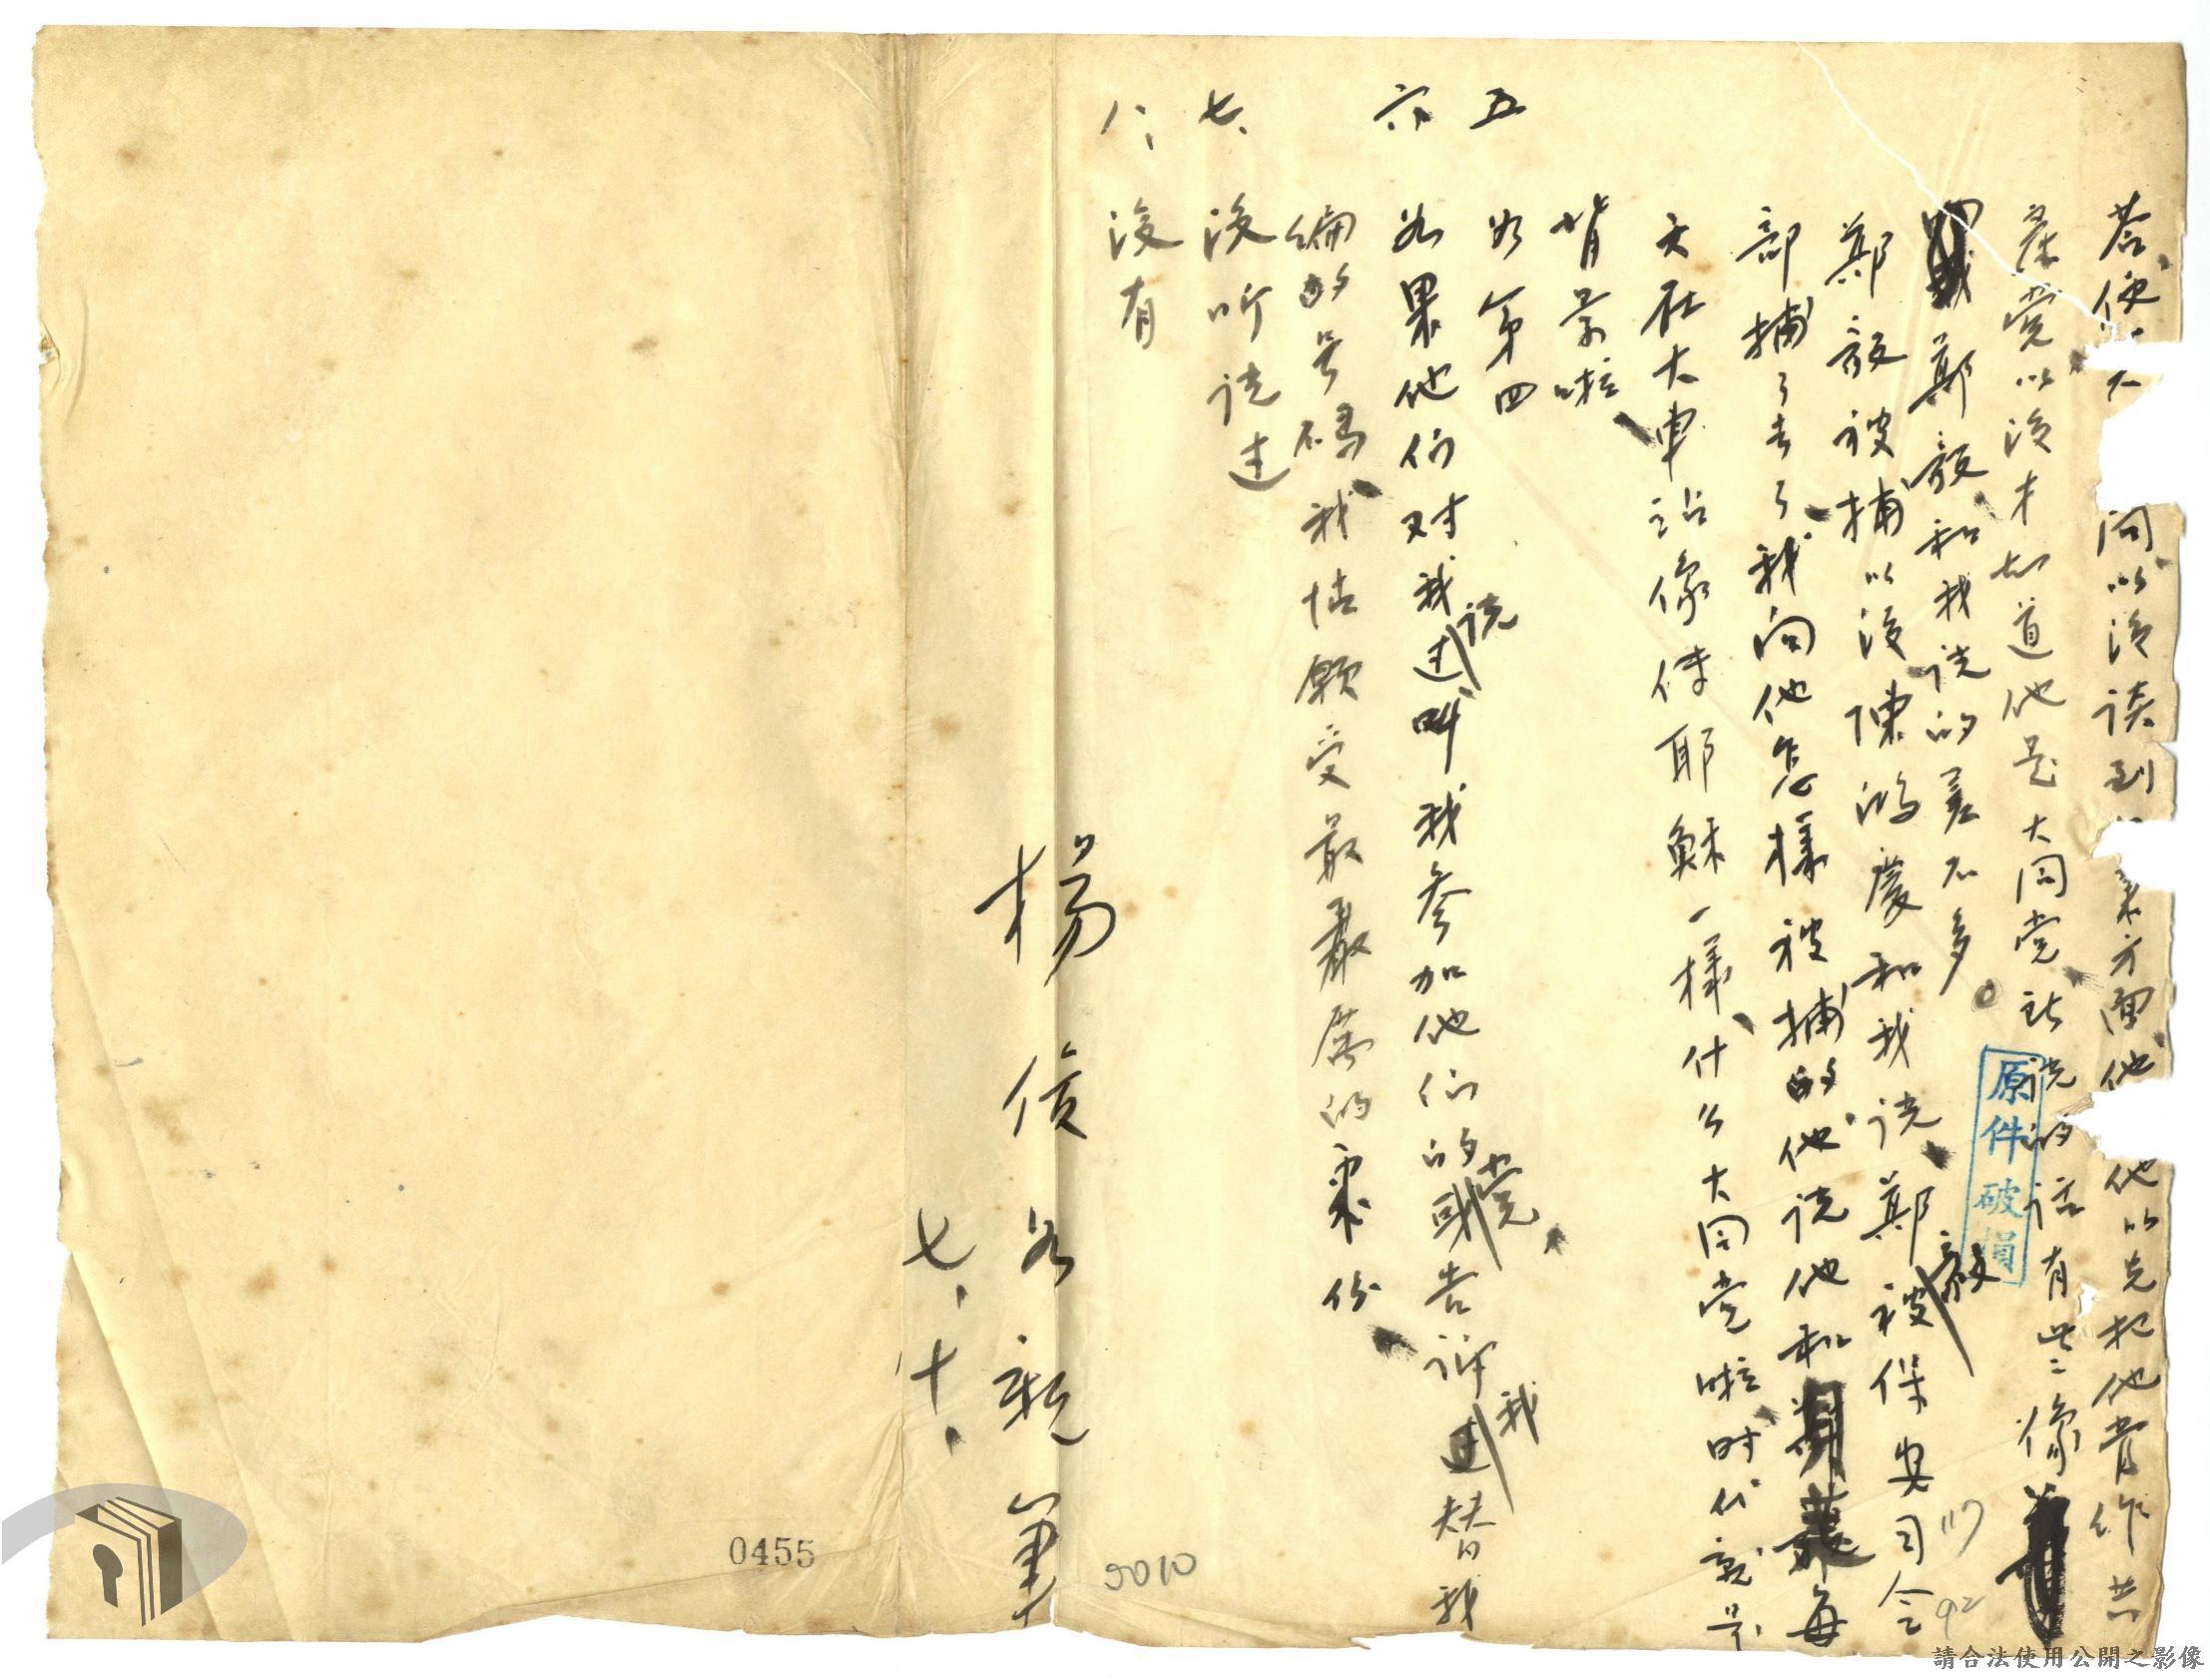 问以後談到
方面他
他以先把他當作共
產党以後才知道他是大同党，説的話有些像
鄭毅和我説的差不多。
鄭毅被捕以後陳鴻慶和我説，鄭毅被保安司令
部捕了去了，我问他怎樣被捕的他説他和
每
天在大車站像傳耶穌一樣，什么大同党啦时代就是
背景啦，
五
如第四
六、
如果他们对我説叫我參加他们的党，告訴我替我
編的号碼，我情願受最嚴厲的處份，
七、
没听説过
八、
没有
楊俊如親筆
七、十、
原件破損
117
92
5010
0455
請合法使用公開之影像